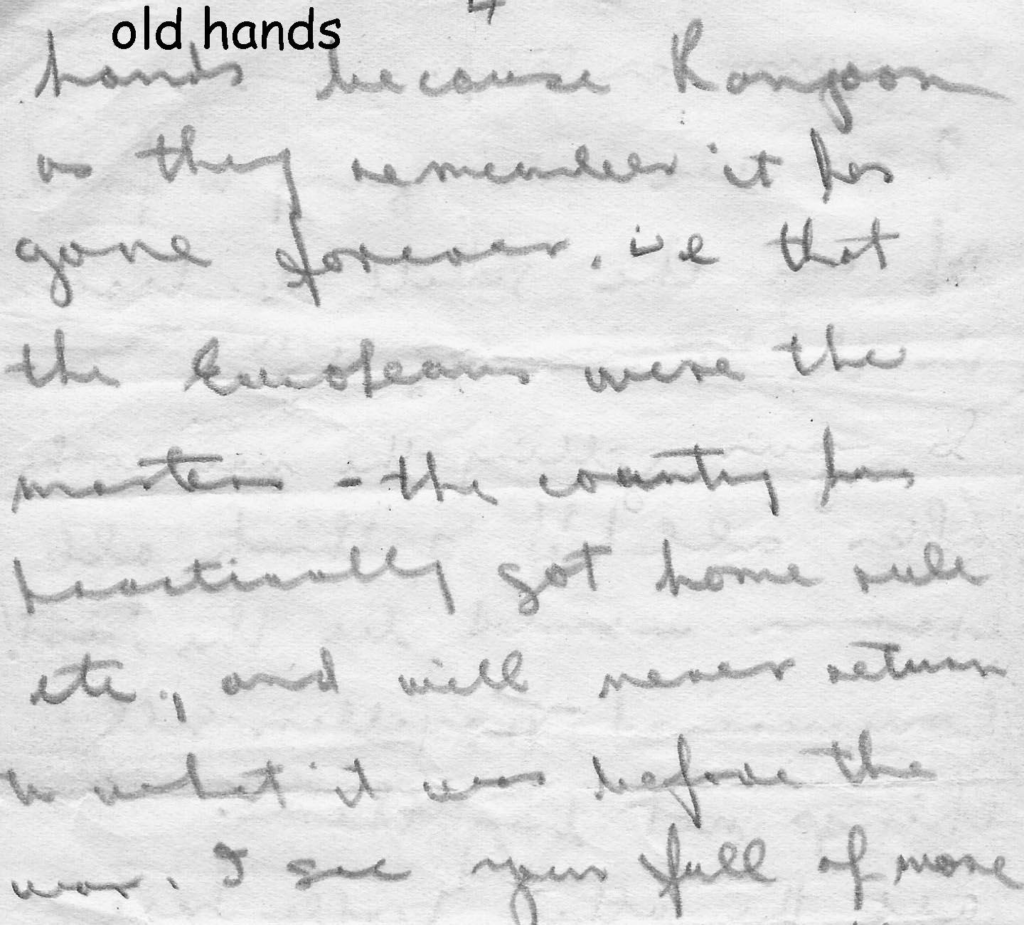 4
old hands
hands because Rangoon
as they remember it has
gone forever, i.e that
the Europeans were the
masters - the country has
practically got home rule
etc., and will never return
to what it was before the
war. I see your full of more